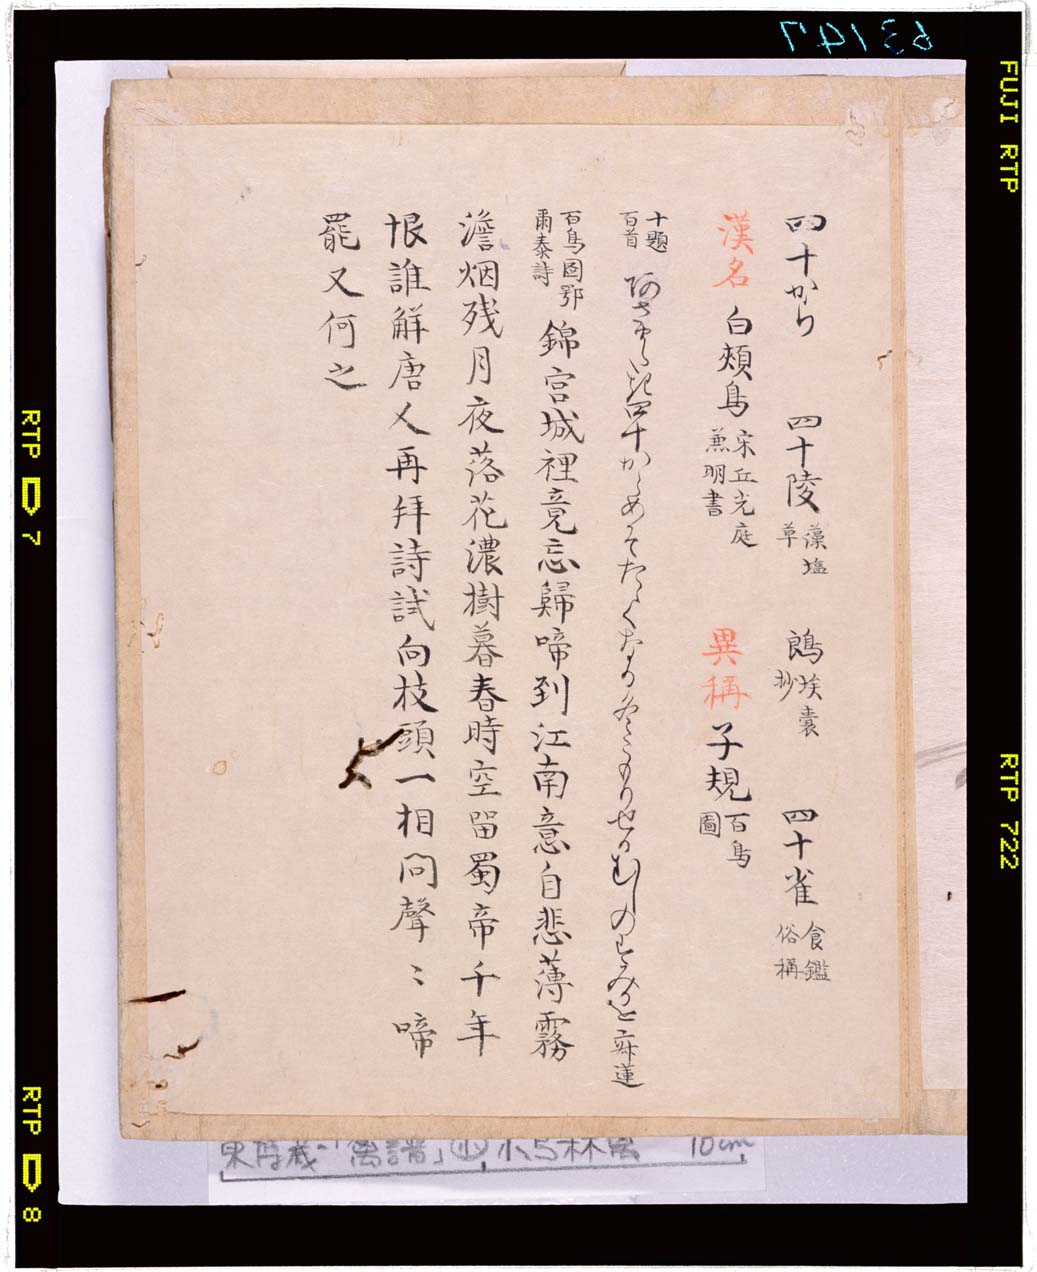 四十から 四十陵 藻塩草 鴲 埃嚢抄 四十雀 食鑑俗稱
漢名 白頰鳥 宋丘光庭兼明書 異稱 子規 百鳥圖
十題百首 四十から の 寂蓮
百鳥圖鄂爾泰詩 錦宮城裡竟忘歸啼到江南意自悲薄霧
澹烟残月夜落花濃樹暮春時空留蜀帝千年
恨誰解唐人再拜詩試向枝頭一相問聲〻啼
罷又何之
63147
FUJI RTP
RTP 722
RTP 7
RTP 8
10cm